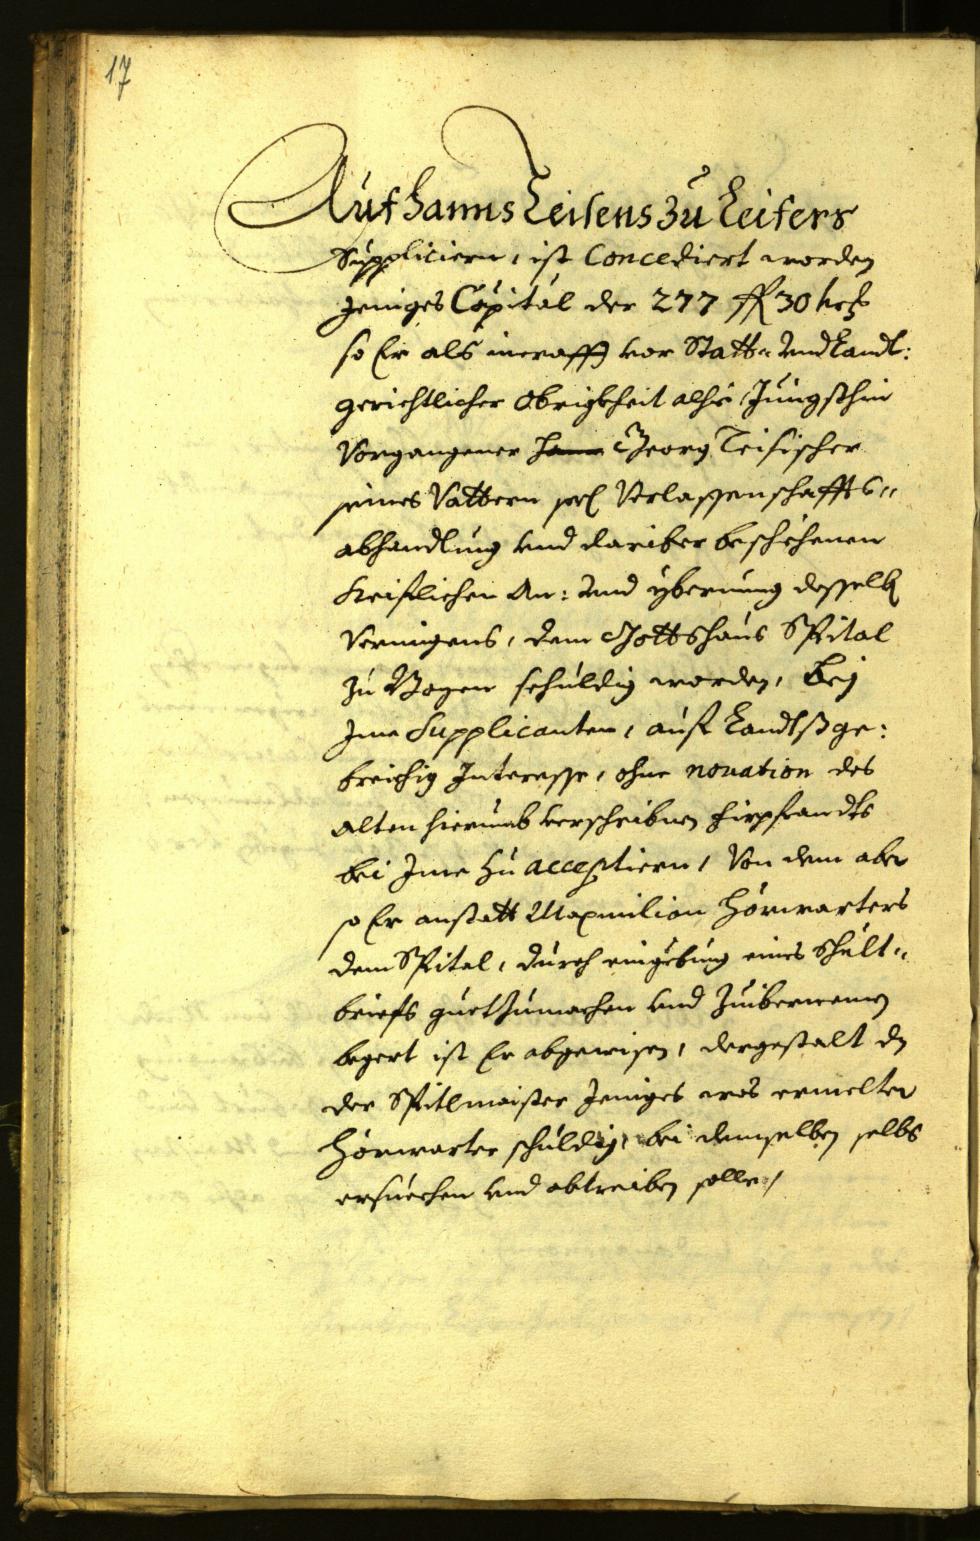 17
Auf Hanns Teisens Zu Leifers
Suppliciern, ist Concediert worden
Jeniges Capital der 277 fl 30 kr
so Er als in vor Statt- und Landt:
gerichtlicher Obrigkheit alhie Jüngsthin
Vorgangener Georg Teisischer
seines Vattern sel Verlassenschaffts"
abhandlung und dariber beschehenen
An: und ybernemung desselb
Vermigens, dem Gottshaus Spital
zu Bozen schuldig worden, Bey
Ime Supplicanten, auf Landtsge:
breichig Interesse, ohne novation des
Alten hierumb verschribnen Firpfandts
bei Ime zu acceptiern, Von dem aber
so Er anstatt Maxmilian Hörwarters
dem Spital, durch eingebung eines Schult"
briefs guet zumachen und Zuibernemen
begert ist Er abgewisen, dergestalt dz
der Spitlmaister Jeniges was ermelter
Hörwarter schuldig, bei demselben selbs
ersuechen und abtreiben solle,